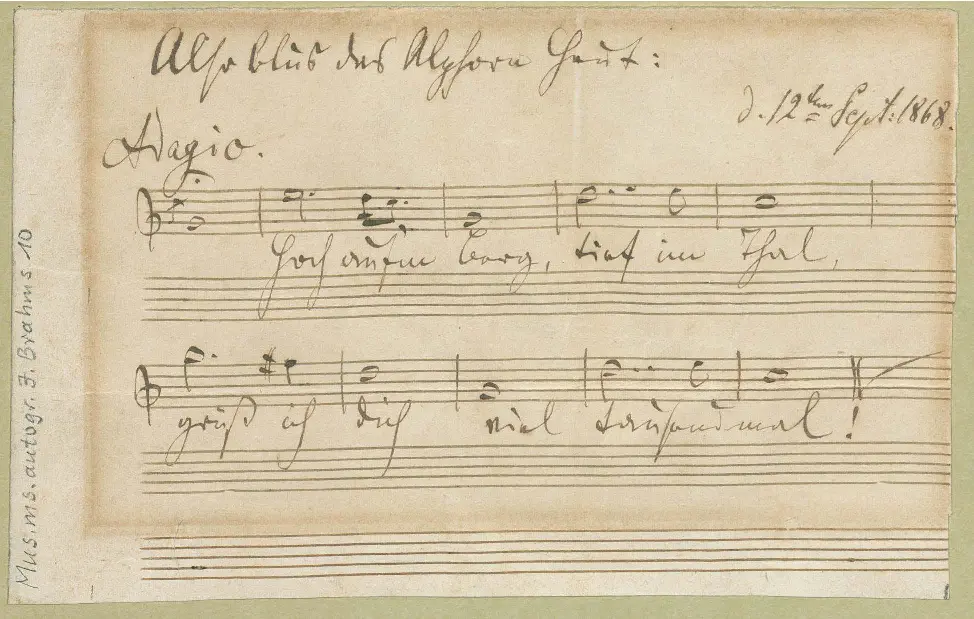 Also blus das Alphorn heut:
d. 12ten Sept. 1868.
Adagio.
Hoch auf'm Berg, tief im Thal,
grüß ich dich viel tausendmal!
Mus. ms. autogr. J. Brahms 10